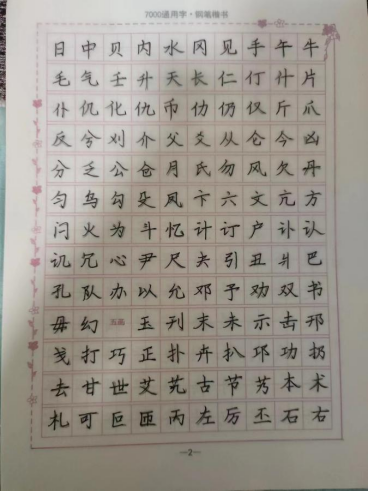 7000通用字·钢笔楷书
日中贝内水冈见手午牛
毛气壬升天长仁仃什片
仆仉化仇币仂仍仅斤爪
反兮刈介父爻从仑今凶
分乏公仓月氏勿风欠丹
匀乌勾殳凤卞六文亢方
闩火为斗忆计订户讣认
讥冗心尹尺夬引丑爿巴
孔队办以允邓予劝双书
毋幻五画玉刊末未示击邗
戋打巧正扑卉扒邛功扔
去甘世艾艽古节艿本术
札可叵匝丙左厉丕石右
—2—